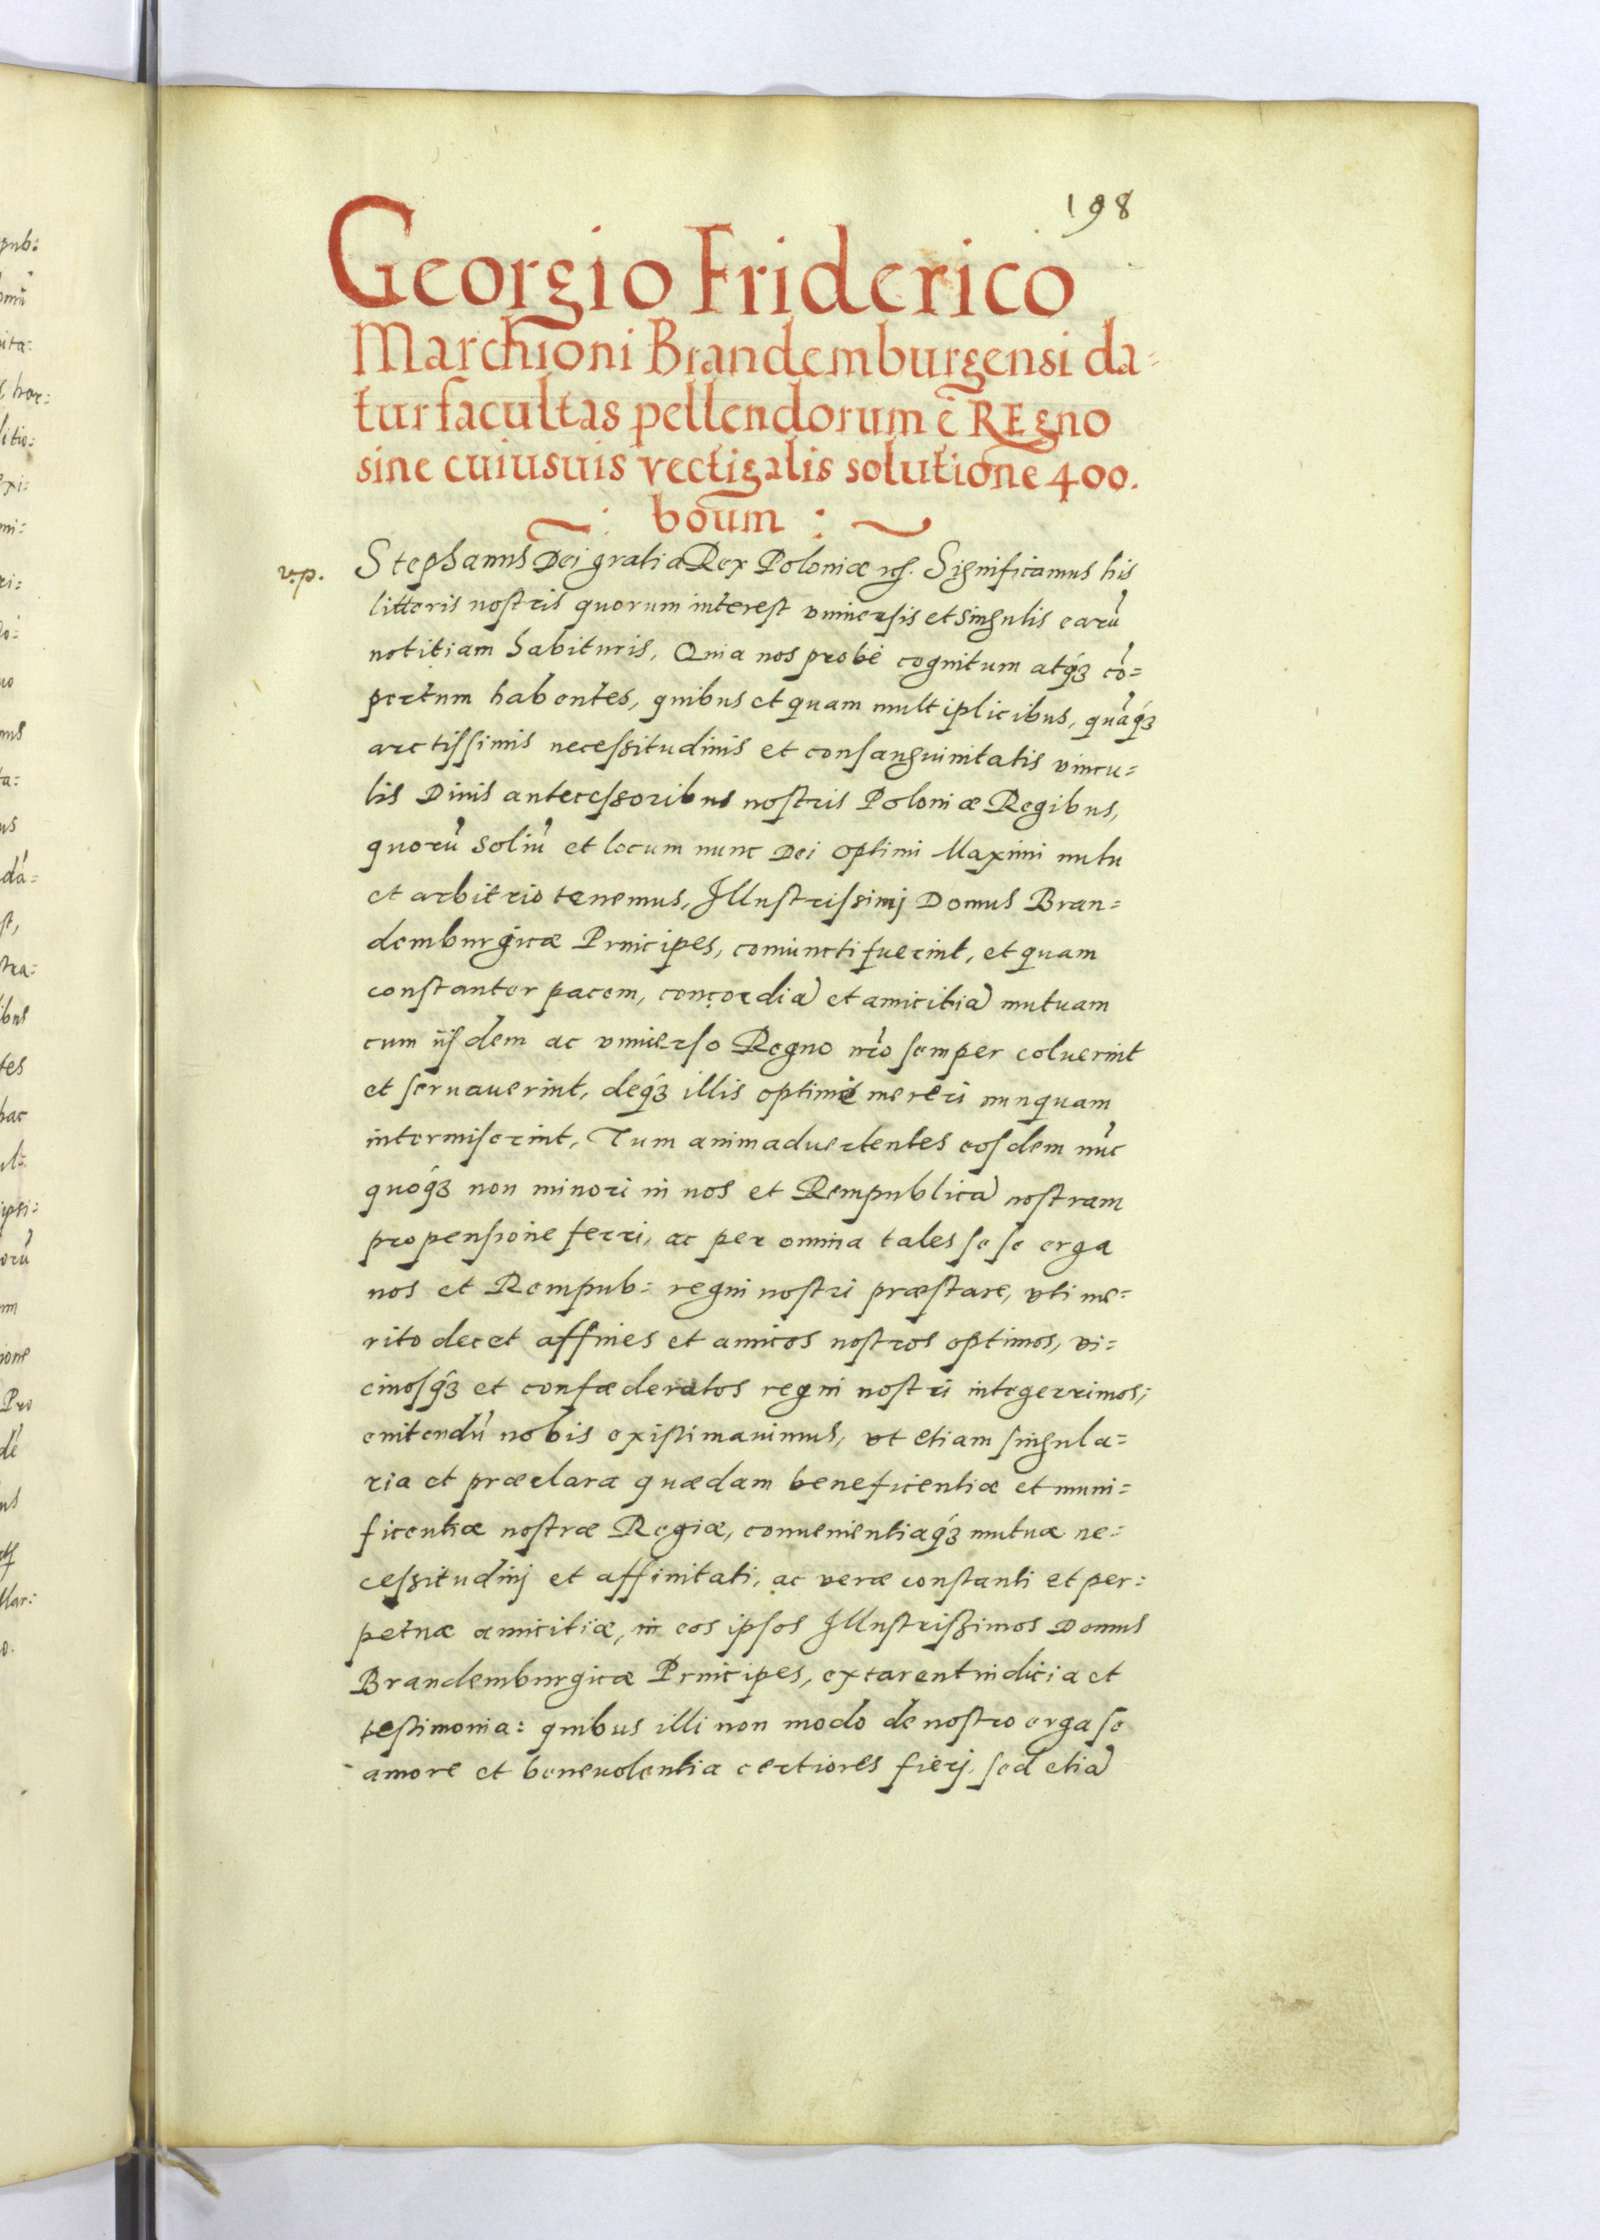 198
Georgio Friderico
Marchioni Brandemburgensi da=
tur facultas pellendorum è REgno
sine cuiusuis vectigalis solutione 400.
~ : boum : ~
v.p.
Stephanus Dei gratia Rex Poloniæ etc. Significamus his
litteris nostris quorum interest vniuersis et singulis earū
notitiam habituris, Quia nos probè cognitum atq́ꝫ cō=
pertum habentes, quibus et quam multiplicibus, quāq́ꝫ
arctissimis necessitudinis et consanguinitatis vincu=
lis Diuis antecessoribus nostris Poloniæ Regibus,
quorū soliū et locum nunc Dei Optimi Maximi nutu
et arbitrio tenemus, Illustrissimj Domus Bran=
demburgicæ Principes, coniuncti fuerint, et quam
constanter pacem, concordiā et amicitiā mutuam
cum iisdem ac vniuerso Regno nr̄o semper coluerint
et seruauerint, deq́ꝫ illis optimè mereri nunquam
intermiserint, Tum animaduertentes eosdem nūc
quoq́ꝫ non minori in nos et Rempublicā nostram
propensione ferri, ac per omnia tales se se erga
nos et Rempub: regni nostri præstare, vti me=
rito decet affines et amicos nostros optimos, vi=
cinosq́ꝫ et confœderatos regni nostri integerrimos;
enitendū nobis existimauimus, vt etiam singula=
ria et præclara quædam beneficentiæ et muni=
ficentiæ nostræ Regiæ, conuenientiaq́ꝫ mutuæ ne=
cessitudinj et affinitati, ac veræ constanti et per=
petuæ amicitiæ, in eos ipsos Illustrissimos Domus
Brandemburgicæ Principes, extarent indicia et
testimonia: quibus illi non modo de nostro erga se
amore et beneuolentia certiores fierj, sed etiā